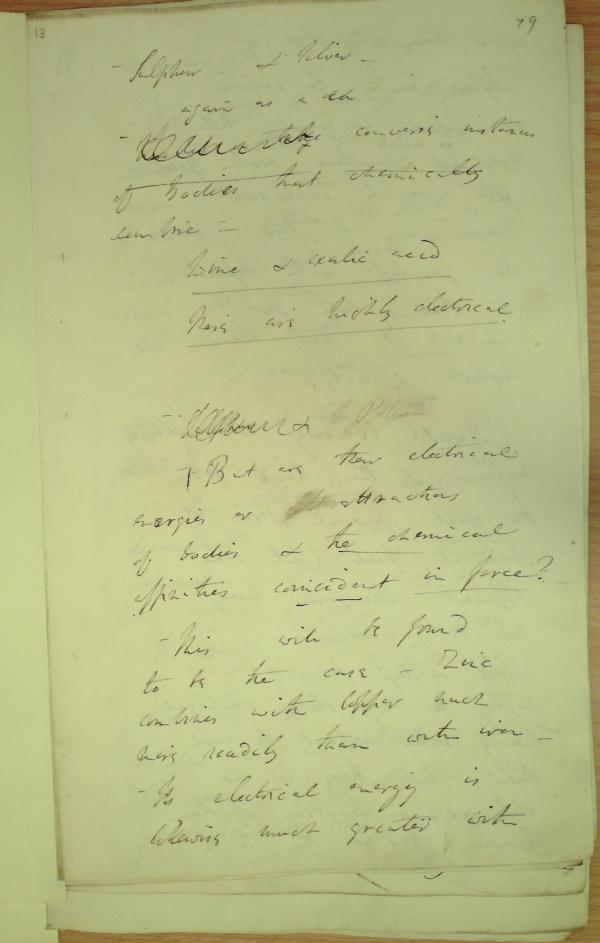 13
79
- Sulphur - & Silver -
again as a
converse instances
of bodies that chemically
combine -
Lime & oxalic acid
these are highly electrical
&
But are these electrical
energies or attractions
of bodies & the chemical
affinities coincident in force?
- This will be found
to be the case - Zinc
combines with Copper much
more readily than with iron -
- Its electrical energy is
likewise much greater with